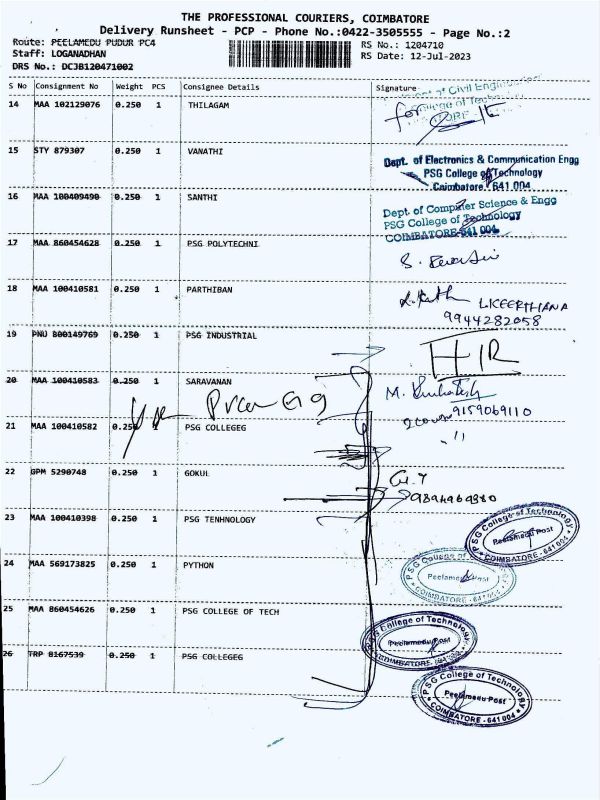 THE PROFESSIONAL COURIERS, COIMBATORE
Delivery Runsheet - PCP - Phone No.:0422-3505555 - Page No.:2
Route: PEELAMEDU PUDUR PC4
RS No.: 1204710
Staff: LOGANADHAN
RS Date: 12-Jul-2023
DRS No.: DCJB120471002
S No Consignment No Weight PCS Consignee Details Signature
14 MAA 102129076 0.250 1 THILAGAM
for
of Civil Engineering
College of Tech
15 STY 879307 0.250 1 VANATHI
Dept. of Electronics & Communication Engg
PSG College of Technology
Coimbatore 641 004
16 MAA 100409490 0.250 1 SANTHI
Dept of Computer Science & Engg
PSG College of Technology
COIMBATORE-641 004
17 MAA 860454628 0.250 1 PSG POLYTECHNI
18 MAA 100410581 0.250 1 PARTHIBAN
L.KEERTHANA
9944282058
19 PNU 800149769 0.250 1 PSG INDUSTRIAL
20 MAA 100410583 0.250 1 SARAVANAN
9159069110
21 MAA 100410582 0.250 1 PSG COLLEGEG
22 GPM 5290748 0.250 1 GOKUL
23 MAA 100410398 0.250 1 PSG TENHNOLOGY
PSG College of Technology
Peelamedu Post
COIMBATORE - 641 004
24 MAA 569173825 0.250 1 PYTHON
PSG College of Technology
Peelamedu Post
COIMBATORE - 641 004
25 MAA 860454626 0.250 1 PSG COLLEGE OF TECH
PSG College of Technology
Peelamedu Post
COIMBATORE - 641 004
26 TRP 8167539 0.250 1 PSG COLLEGEG
PSG College of Technology
Peelamedu Post
COIMBATORE - 641 004